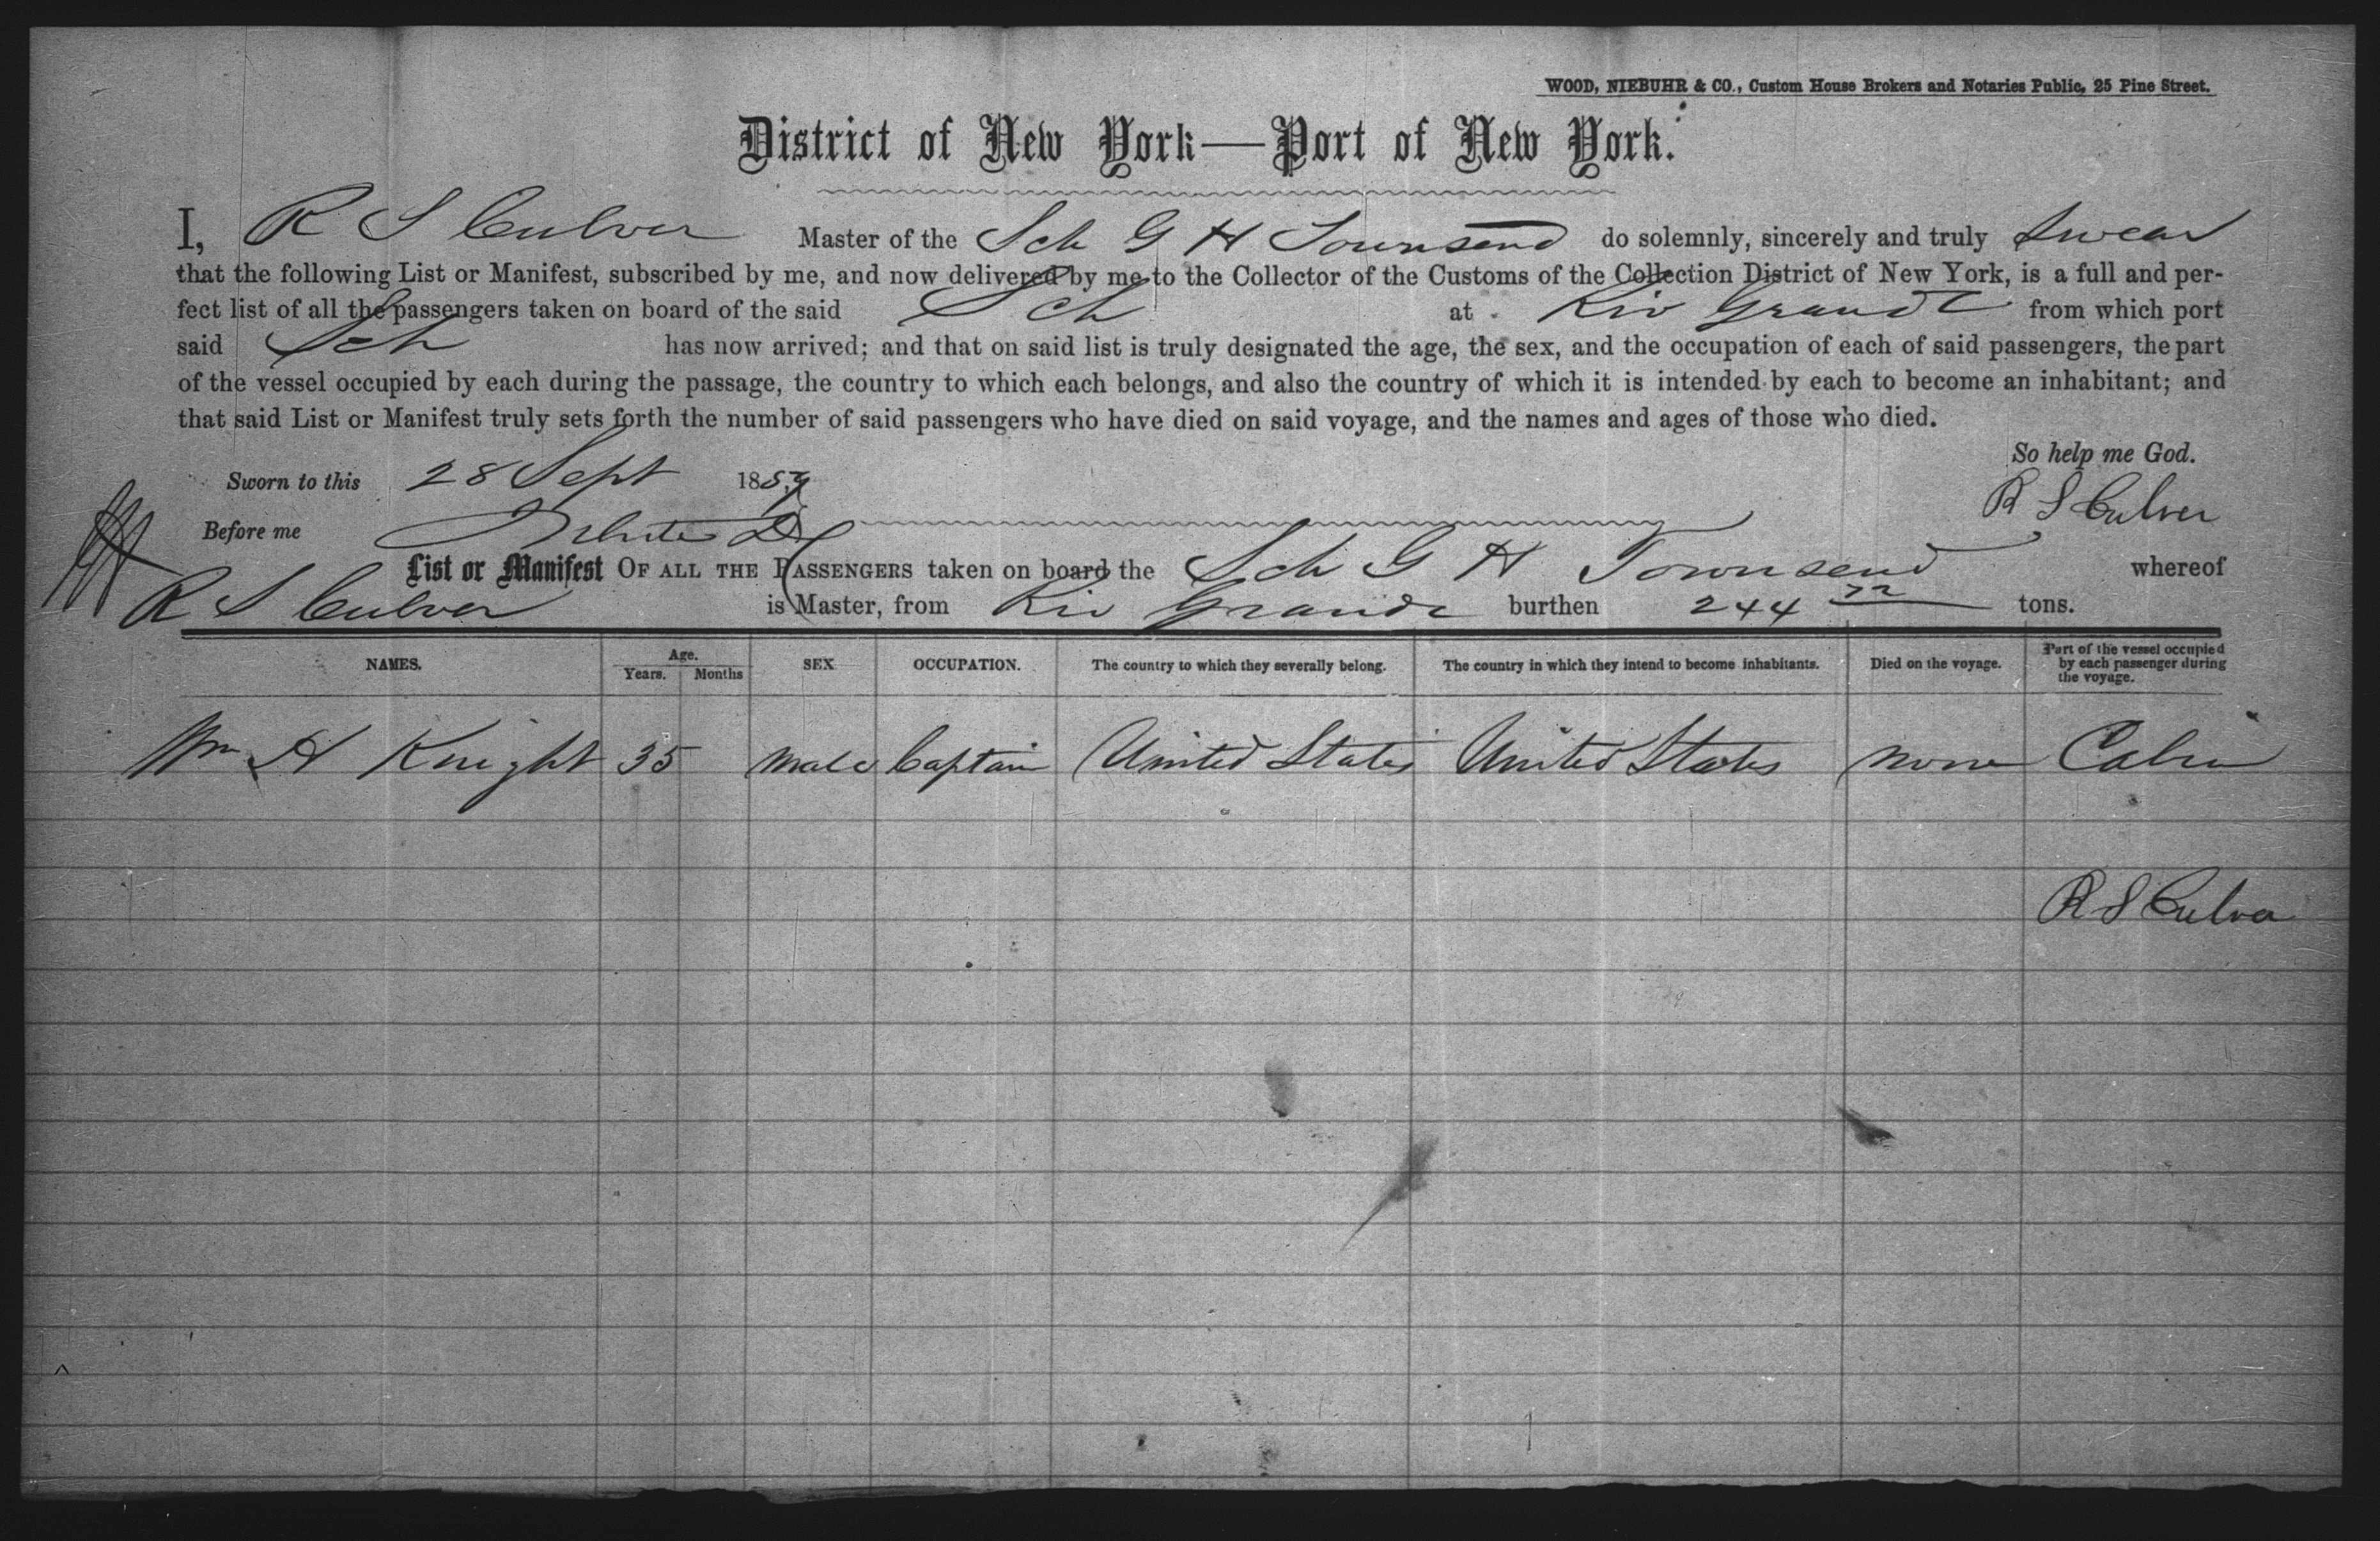 WOOD, NIEBUHR & CO., Custom House Brokers and Notaries Public, 25 Pine Street.
District of New York—Port of New York.
I, R S Culver Master of the Sch G H Townsend do solemnly, sincerely and truly Swear
that the following List or Manifest, subscribed by me, and now delivered by me to the Collector of the Customs of the Collection District of New York, is a full and per-
fect list of all the passengers taken on board of the said Sch at Rio Grande from which port
said Sch has now arrived; and that on said list is truly designated the age, the sex, and the occupation of each of said passengers, the part
of the vessel occupied by each during the passage, the country to which each belongs, and also the country of which it is intended by each to become an inhabitant; and
that said List or Manifest truly sets forth the number of said passengers who have died on said voyage, and the names and ages of those who died.
So help me God.
Sworn to this 28 Sept 1859
R S Culver
Before me
List or Manifest OF ALL THE PASSENGERS taken on board the Sch G H Townsend whereof
R S Culver is Master, from Rio Grande burthen 244 tons.
NAMES. Age. Years. Months SEX OCCUPATION. The country to which they severally belong. The country in which they intend to become inhabitants. Died on the voyage. Part of the vessel occupied by each passenger during the voyage.
Wm H Knight 35 Male Captain United States United States none Cabin
R S Culver